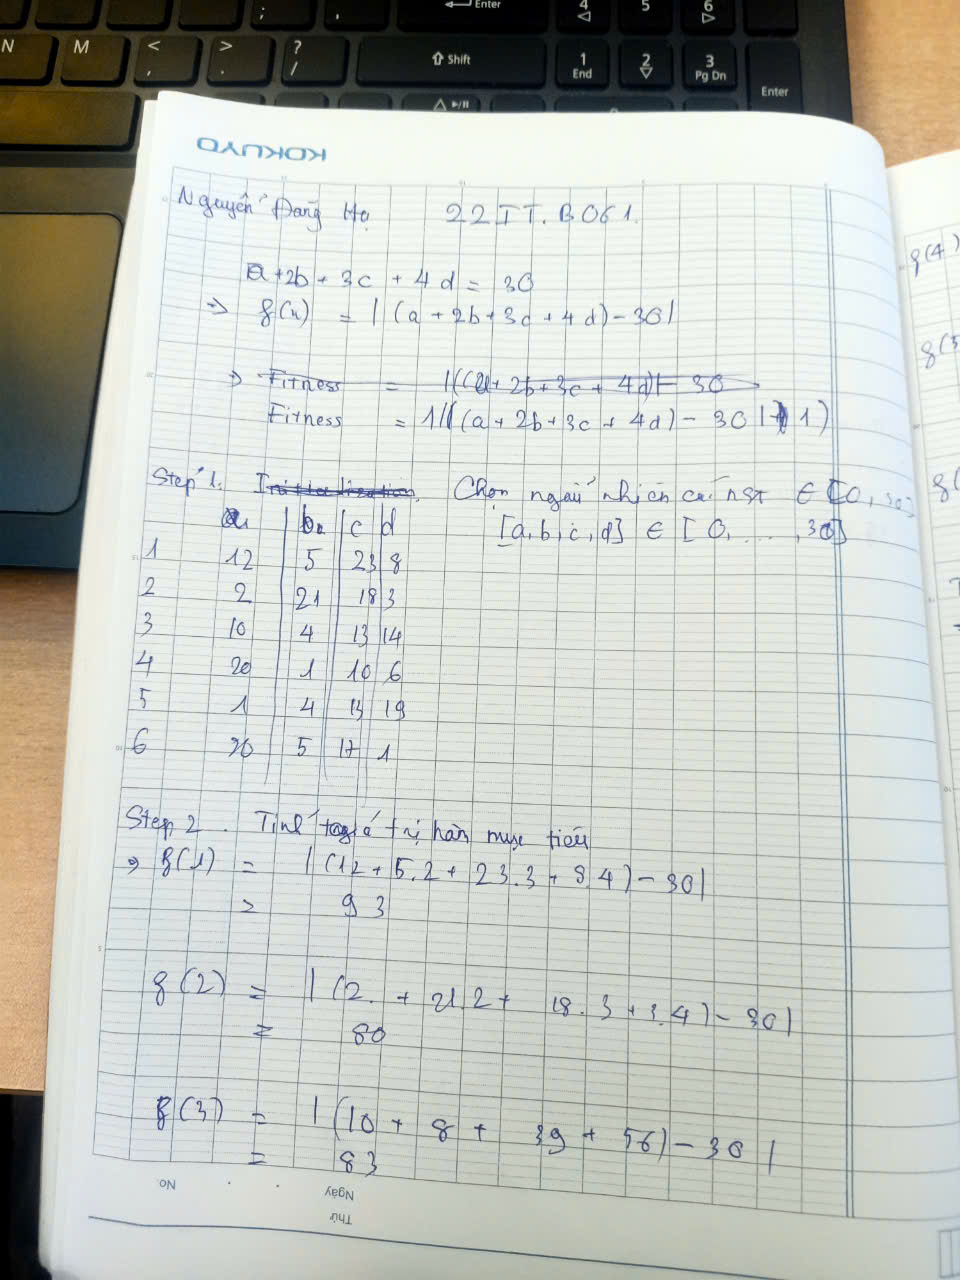 ; :
, .
← Enter
4
5
6
N
M
<
,
>
.
?
/
⇧ Shift
1
End
2
3
Pg Dn
Enter
KOKUYO
Nguyễn Đang Họ 22IT.B061.
a + 2b + 3c + 4d = 30
⇒ f(x) = | (a + 2b + 3c + 4d) - 30 |
⇒ Fitness = 1/((a + 2b + 3c + 4d) - 30
Fitness = 1/(|(a + 2b + 3c + 4d) - 30| + 1)
Step 1. Initialization. Chọn ngẫu nhiên các nst ∈ [0, 30]
a b c d [a, b, c, d] ∈ [0, ..., 30]
1 12 5 23 8
2 2 21 18 3
3 10 4 13 14
4 20 1 10 6
5 1 4 13 19
6 20 5 17 1
Step 2. Tính giá trị hàm mục tiêu
⇒ f(1) = | (12 + 5.2 + 23.3 + 8.4) - 30 |
= 93
f(2) = | (2 + 21.2 + 18.3 + 3.4) - 30 |
= 80
f(3) = | (10 + 8 + 39 + 56) - 30 |
= 83
No
Ngày
Thứ
f(4)